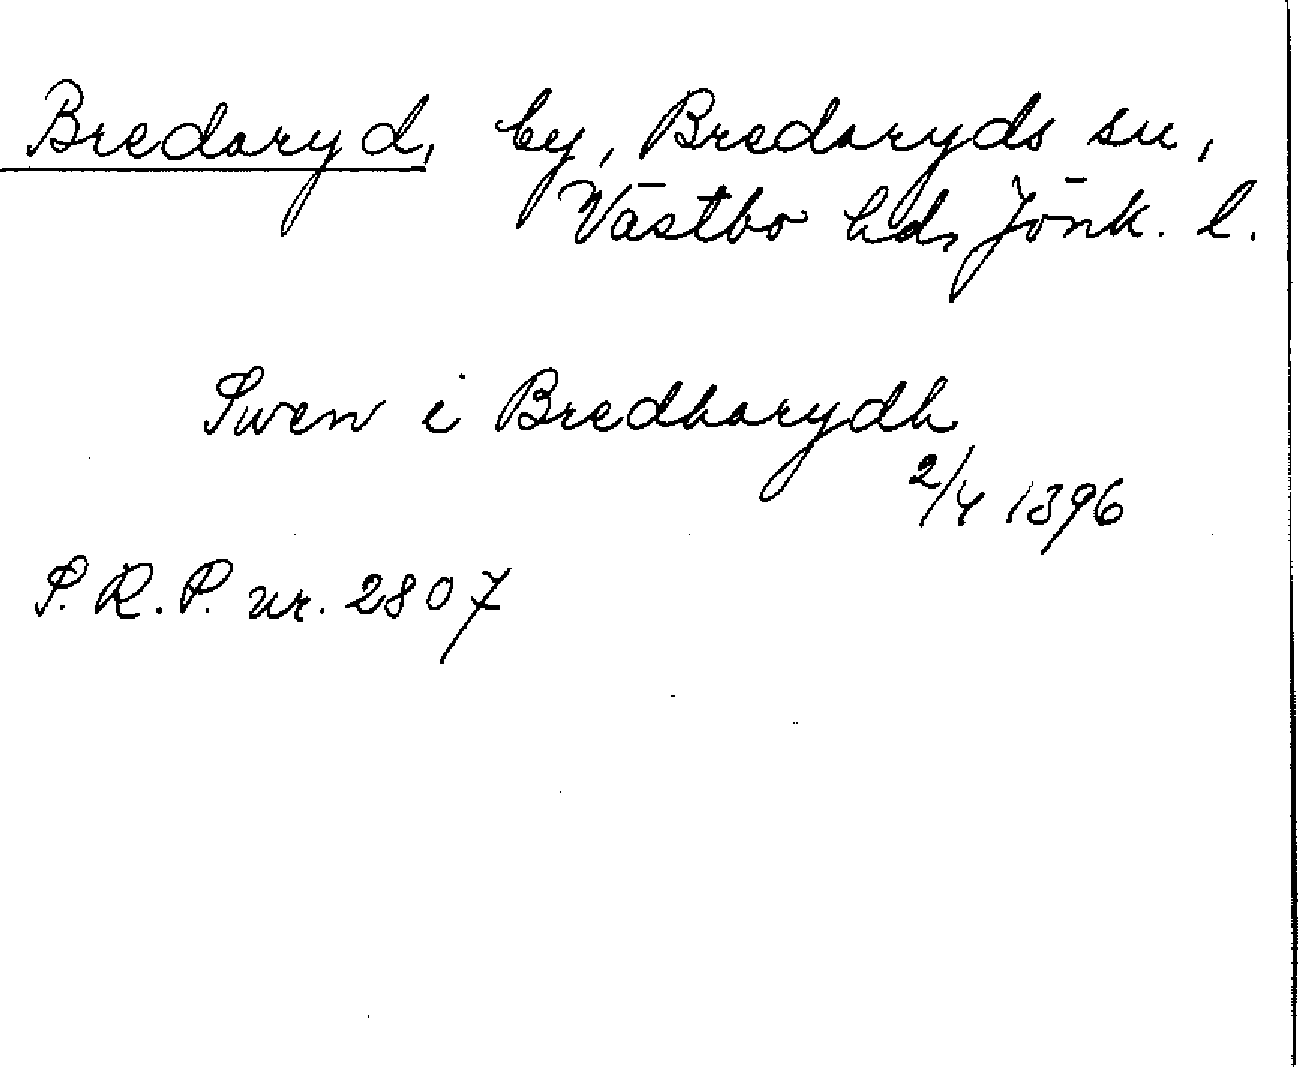 Bredaryd, by, Bredaryds sn,
Västbo hd, Jönk. l.
Swen i Bredharydh
2/4 1396
S.R.P. nr. 2807